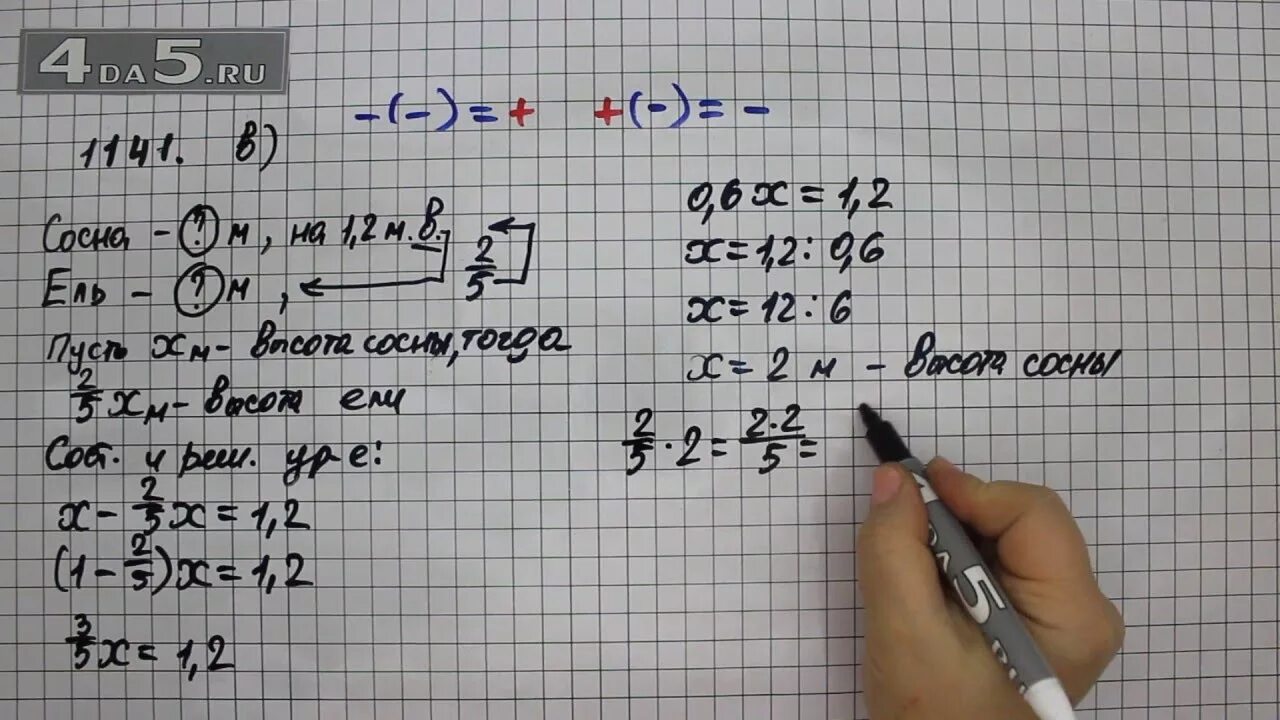 4DA5.RU
-(-)=+ +(-)=-
1141. в)
Сосна - ? м, на 1,2 м. в.
Ель - ? м, 2/5
Пусть x м - высота сосны, тогда
2/5 x м - высота ели
Сост. и реш. ур-е:
x - 2/5 x = 1,2
(1 - 2/5)x = 1,2
3/5 x = 1,2
0,6x = 1,2
x = 1,2 : 0,6
x = 12 : 6
x = 2 м - высота сосны
2/5 · 2 = 2·2/5 =